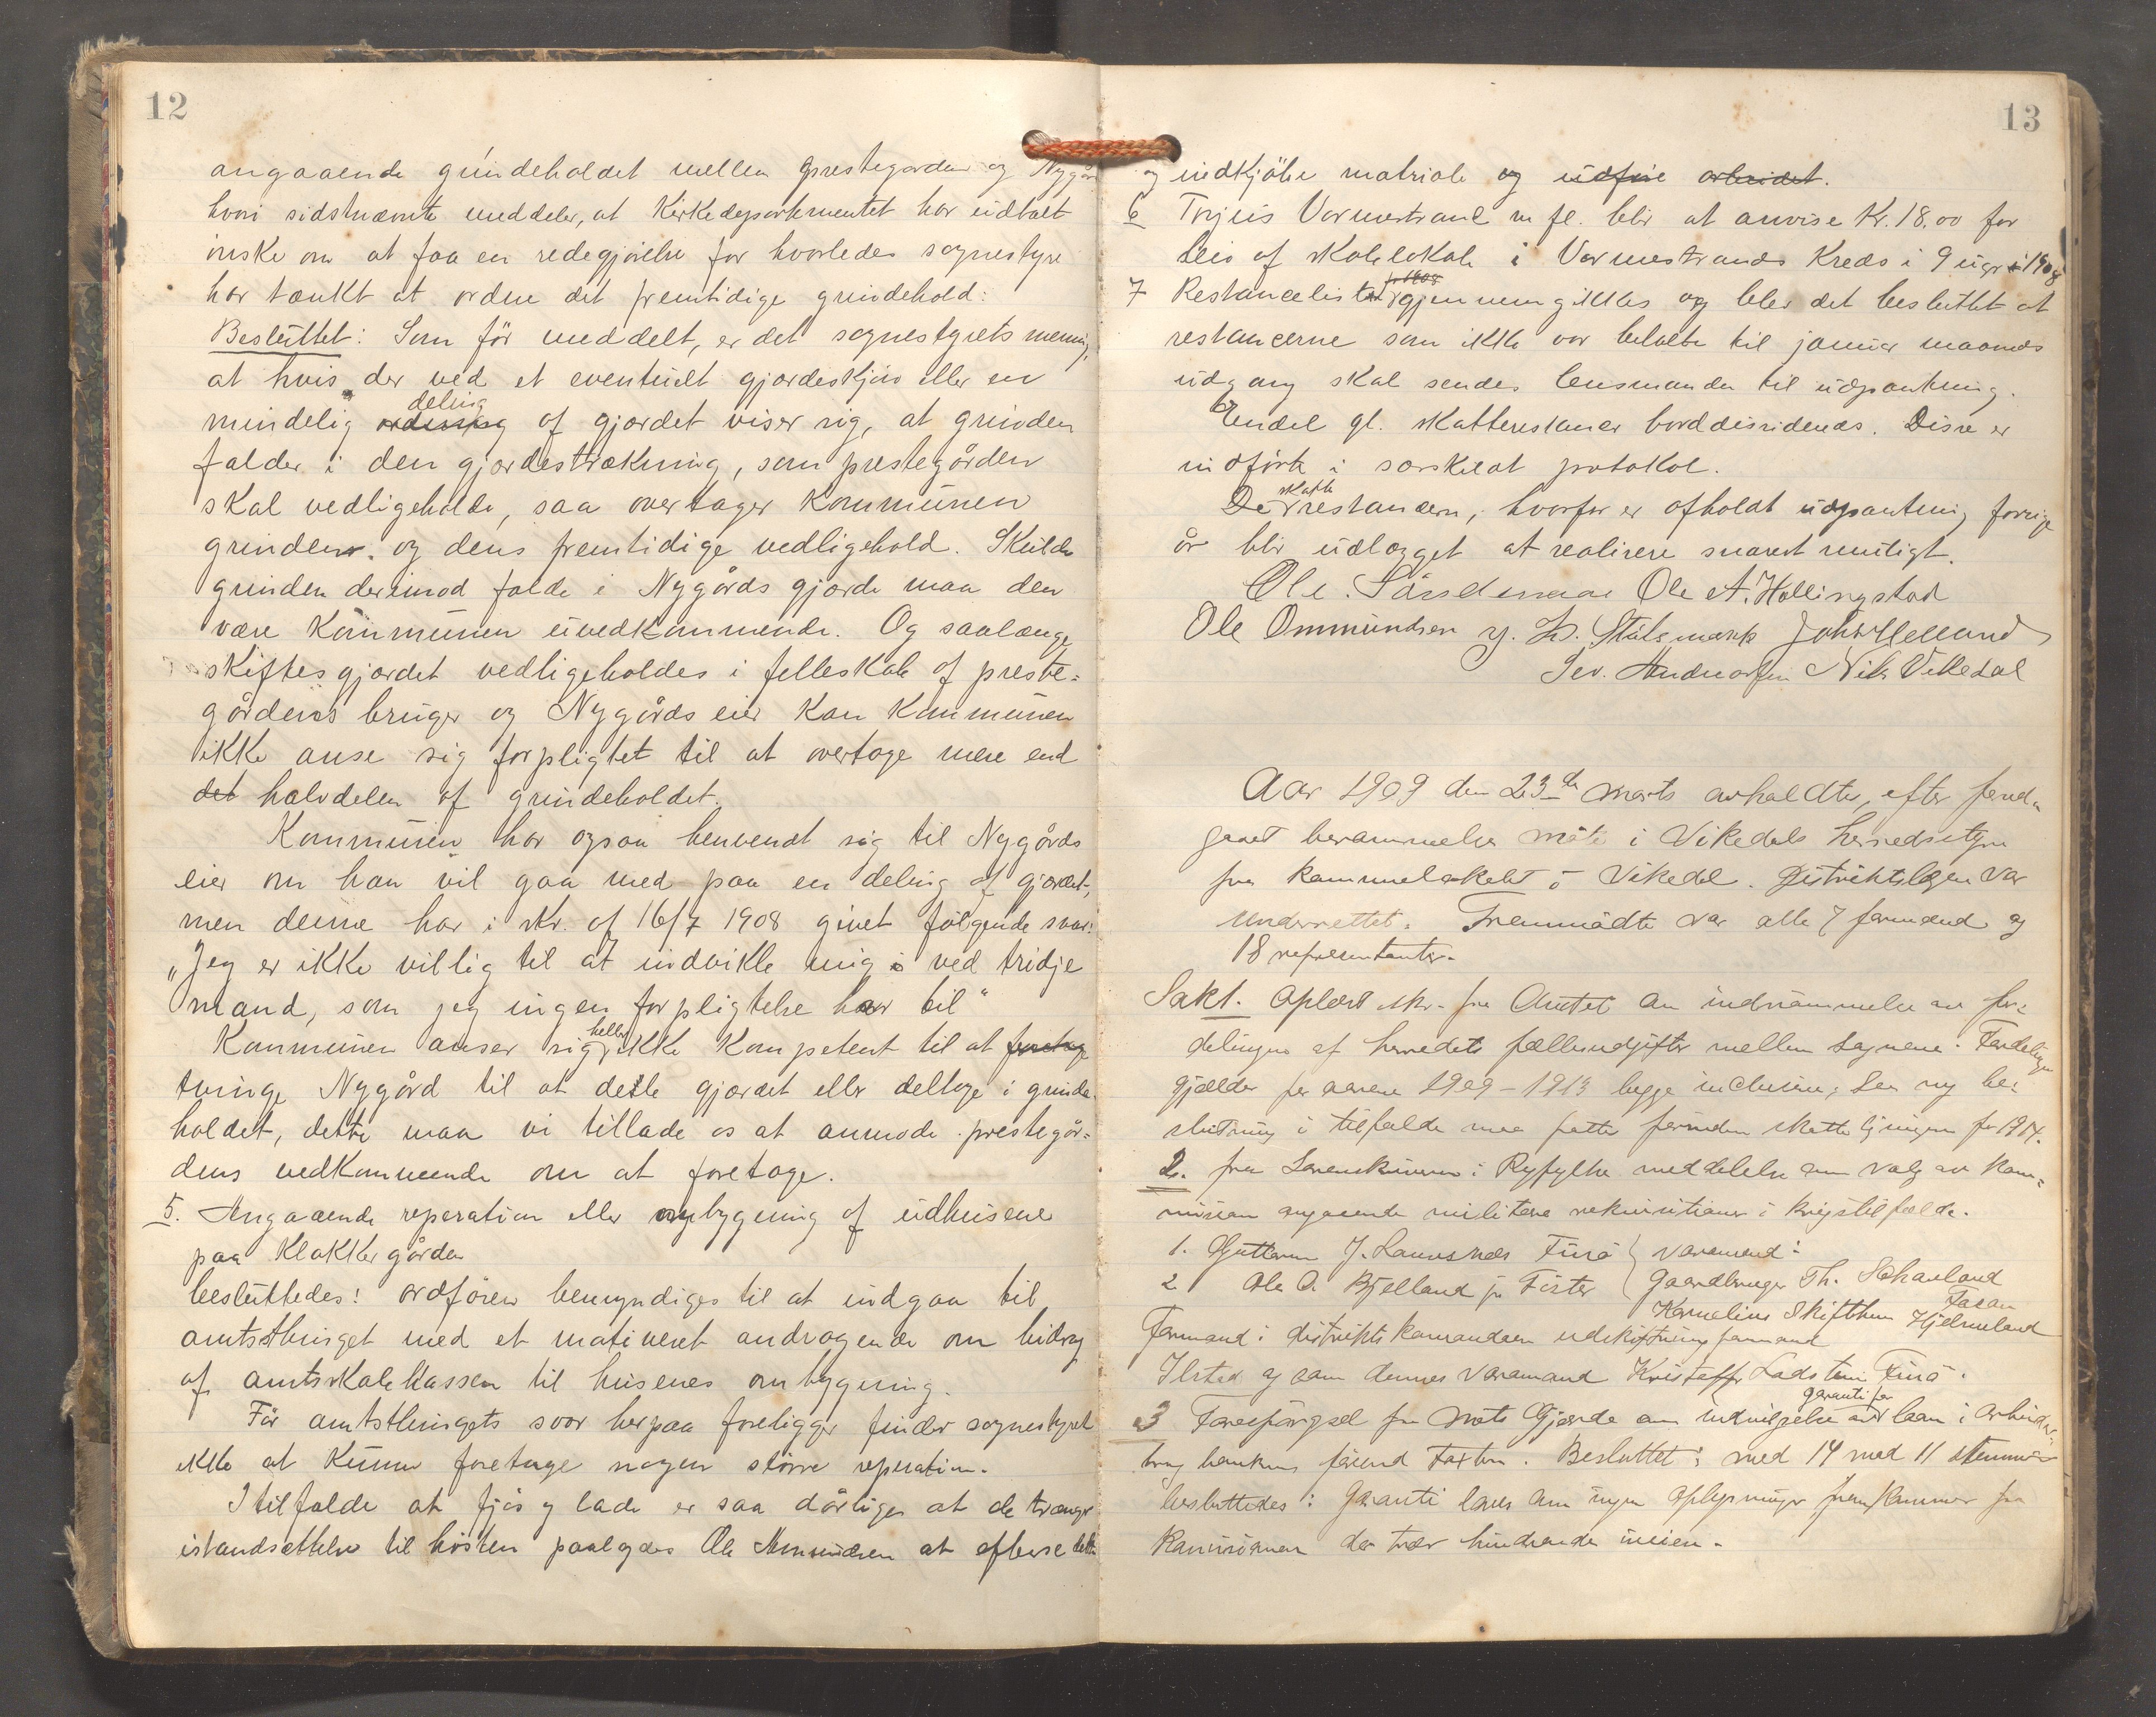 12
angaaende grindeholdet mellem prestegarden og Nygård
hvori sidstnævnte meddeler, at Kirkedepartementet har udtalt
ønske om at faa en redegjørelse for hvorledes sognestyre
har tænkt at ordne det fremtidige grindehold:
Besluttet: Som før meddelt, er det sognestyrets mening,
at hvis der ved et eventuelt gjordeskjøn eller en
mindelig deling af gjordet viser sig, at grinden
falder i den gjordestrækning, som prestegården
skal vedligeholde, saa overtager Kommunen
grinden og dens fremtidige vedligehold. Skulde
grinden derimod falde i Nygårds gjorde maa den
være Kommunen uvedkommende. Og saalænge
skiftesgjordet vedligeholdes i felleskab af preste-
gårdens bruger og Nygårds eier kan Kommunen
ikke anse sig forpligtet til at overtage mere end
det halvdelen af grindeholdet.
Kommunen har ogsaa henvendt sig til Nygårds
eier om han vil gaa med paa en deling af gjordet,
men denne har i skr. af 16/7 1908 givet følgende svar:
"Jeg er ikke villig til at indvikle mig i ved tridje
mand, som jeg ingen forpligtelse har til"
Kommunen anser sig heller ikke kompetent til at foretage
tvinge Nygård til at dele gjordet eller deltage i grinde-
holdet, dette maa vi tillade os at anmode prestegår-
dens vedkommende om at foretage.
5. Angaaende reparation eller nybygning af udhusene
paa Klokkergården
besluttedes: ordføren bemyndiges til at indgaa til
amtsthinget med et motiveret andragende om bidrag
af amtsskolekassen til husenes ombygning.
Før amtsthingets svar herpaa foreligger finder sognestyret
ikke at kunne foretage nogen større reperation.
I tilfælde at fjøs og lade er saa dårlige at de trænger
istandsettelse til høsten paalegges Ole Ommundsen at efterse dette
13
og indkjøbe matriale og udføre arbeidet.
6 Torjus Vormestrand m fl. blir at anvise Kr. 18,00 for
leie af skolelokale i Vormestrands Kreds i 9 uger i 1908
7 Restancelisten for 1908 gjennemgikkes og blev det besluttet at
restancerne som ikke var betalte til januar maaneds
udgang skal sendes lensmanden til udpantning.
Endel gl. skatterestancer borddesiderede. Disse er
indført i særskilt protokol.
De skatterestancer, hvorfor er afholdt udpantning forrige
år blir udlægget at realisere snarest muligt.
Ole Ole A. Hallingstad
Ole Ommundsen John Helland
Sev. Andreassen Nils Vikedal
Aar 1909 den 23de marts avholdtes, efter foreta-
gaaet berammelse møte i Vikedals herredsstyre
paa kommunelokalet i Vikedal. Distriktslægen var
underrettet. Fremmødte var alle 7 formænd og
18 representanter.
Sak 1. Oplæst skr. fra Amtet om indrømmelse av for-
delingen af herredets fællesudgifter mellem sognene. Fordelingen
gjælder for aarene 1909-1913 begge inclusive; Saa ny be-
slutning i tilfælde maa fattes førinden skatteligningen for 1914.
2. fra Sorenskriveren i Ryfylke meddelelse om valg av kom-
mision angaaende militære rekvisitioner i krigstilfælde.
1. Guttorm J. Sandsnes Imsø varamend:
2 Ole O. Bjelland jr Gaardbruger Th. Skavland
Kornelius Skiftthun Hjelmeland
Formand i distrikts kommandoen udskiftningsformand
Ilsted og som dennes varamand Kristoffer Ladstein
3 Forespørgsel fra Mats Gjerde om indvilgelse av garanti for laan i Arbeider-
brug banken. Besluttet: med 14 mod 11 stemmer
besluttedes: Garanti loves om ingen oplysninger fremkommer fra
kommisionen der træder hindrende iveien.